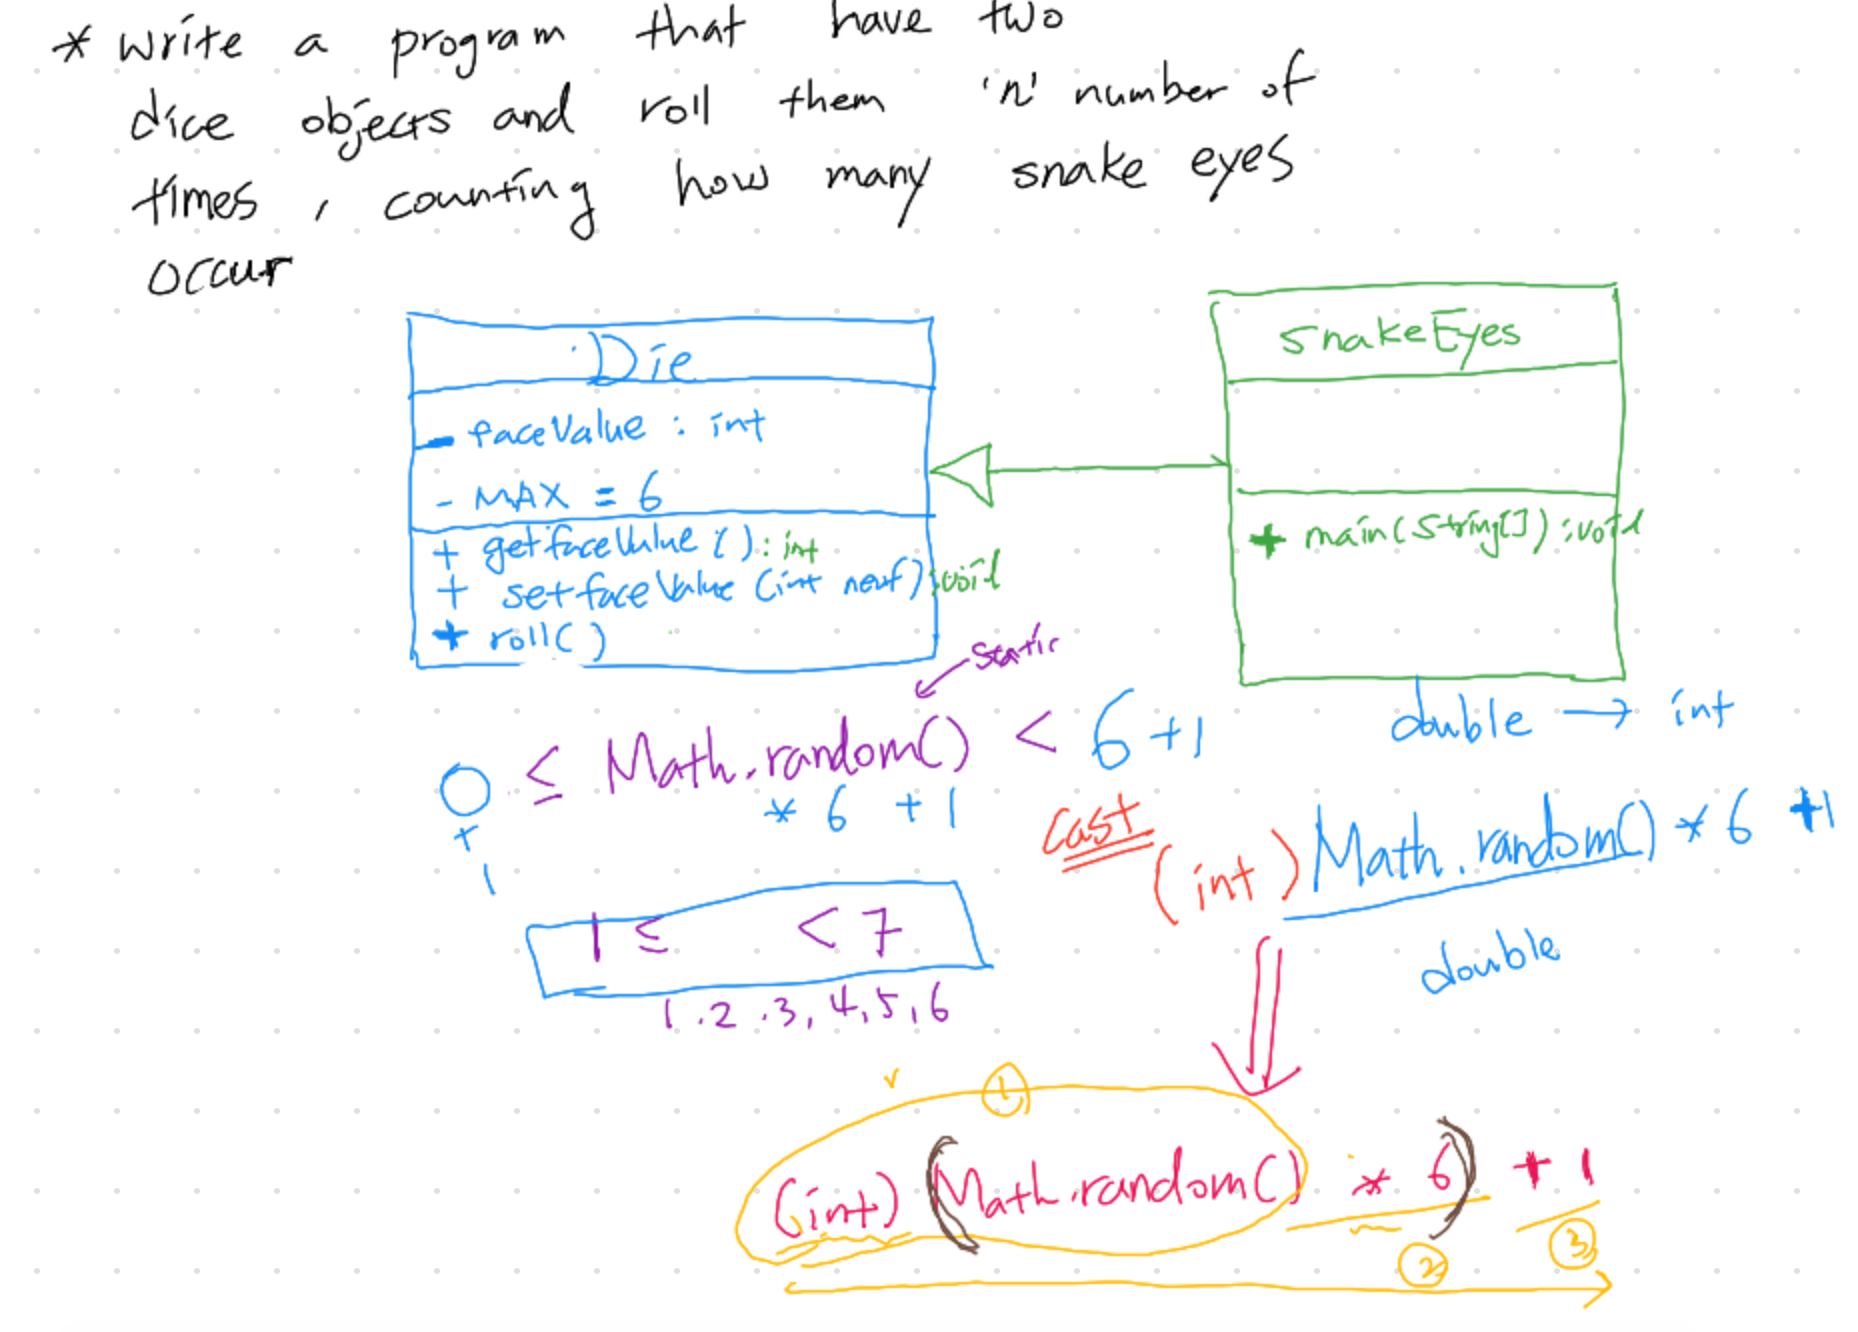 * write a program that have two
dice objects and roll them 'n' number of
times, counting how many snake eyes
occur
Die
- faceValue : int
- MAX = 6
+ getfaceValue () : int
+ setfaceValue (int newf) : void
+ roll()
SnakeEyes
+ main(String[]) : void
static
0 ≤ Math.random() < 6 +1
* 6 + 1
+
1
double → int
cast
(int) Math.random() * 6 +1
double
1 ≤ < 7
1.2.3,4,5,6
1
(int) (Math.random() * 6) + 1
2
3